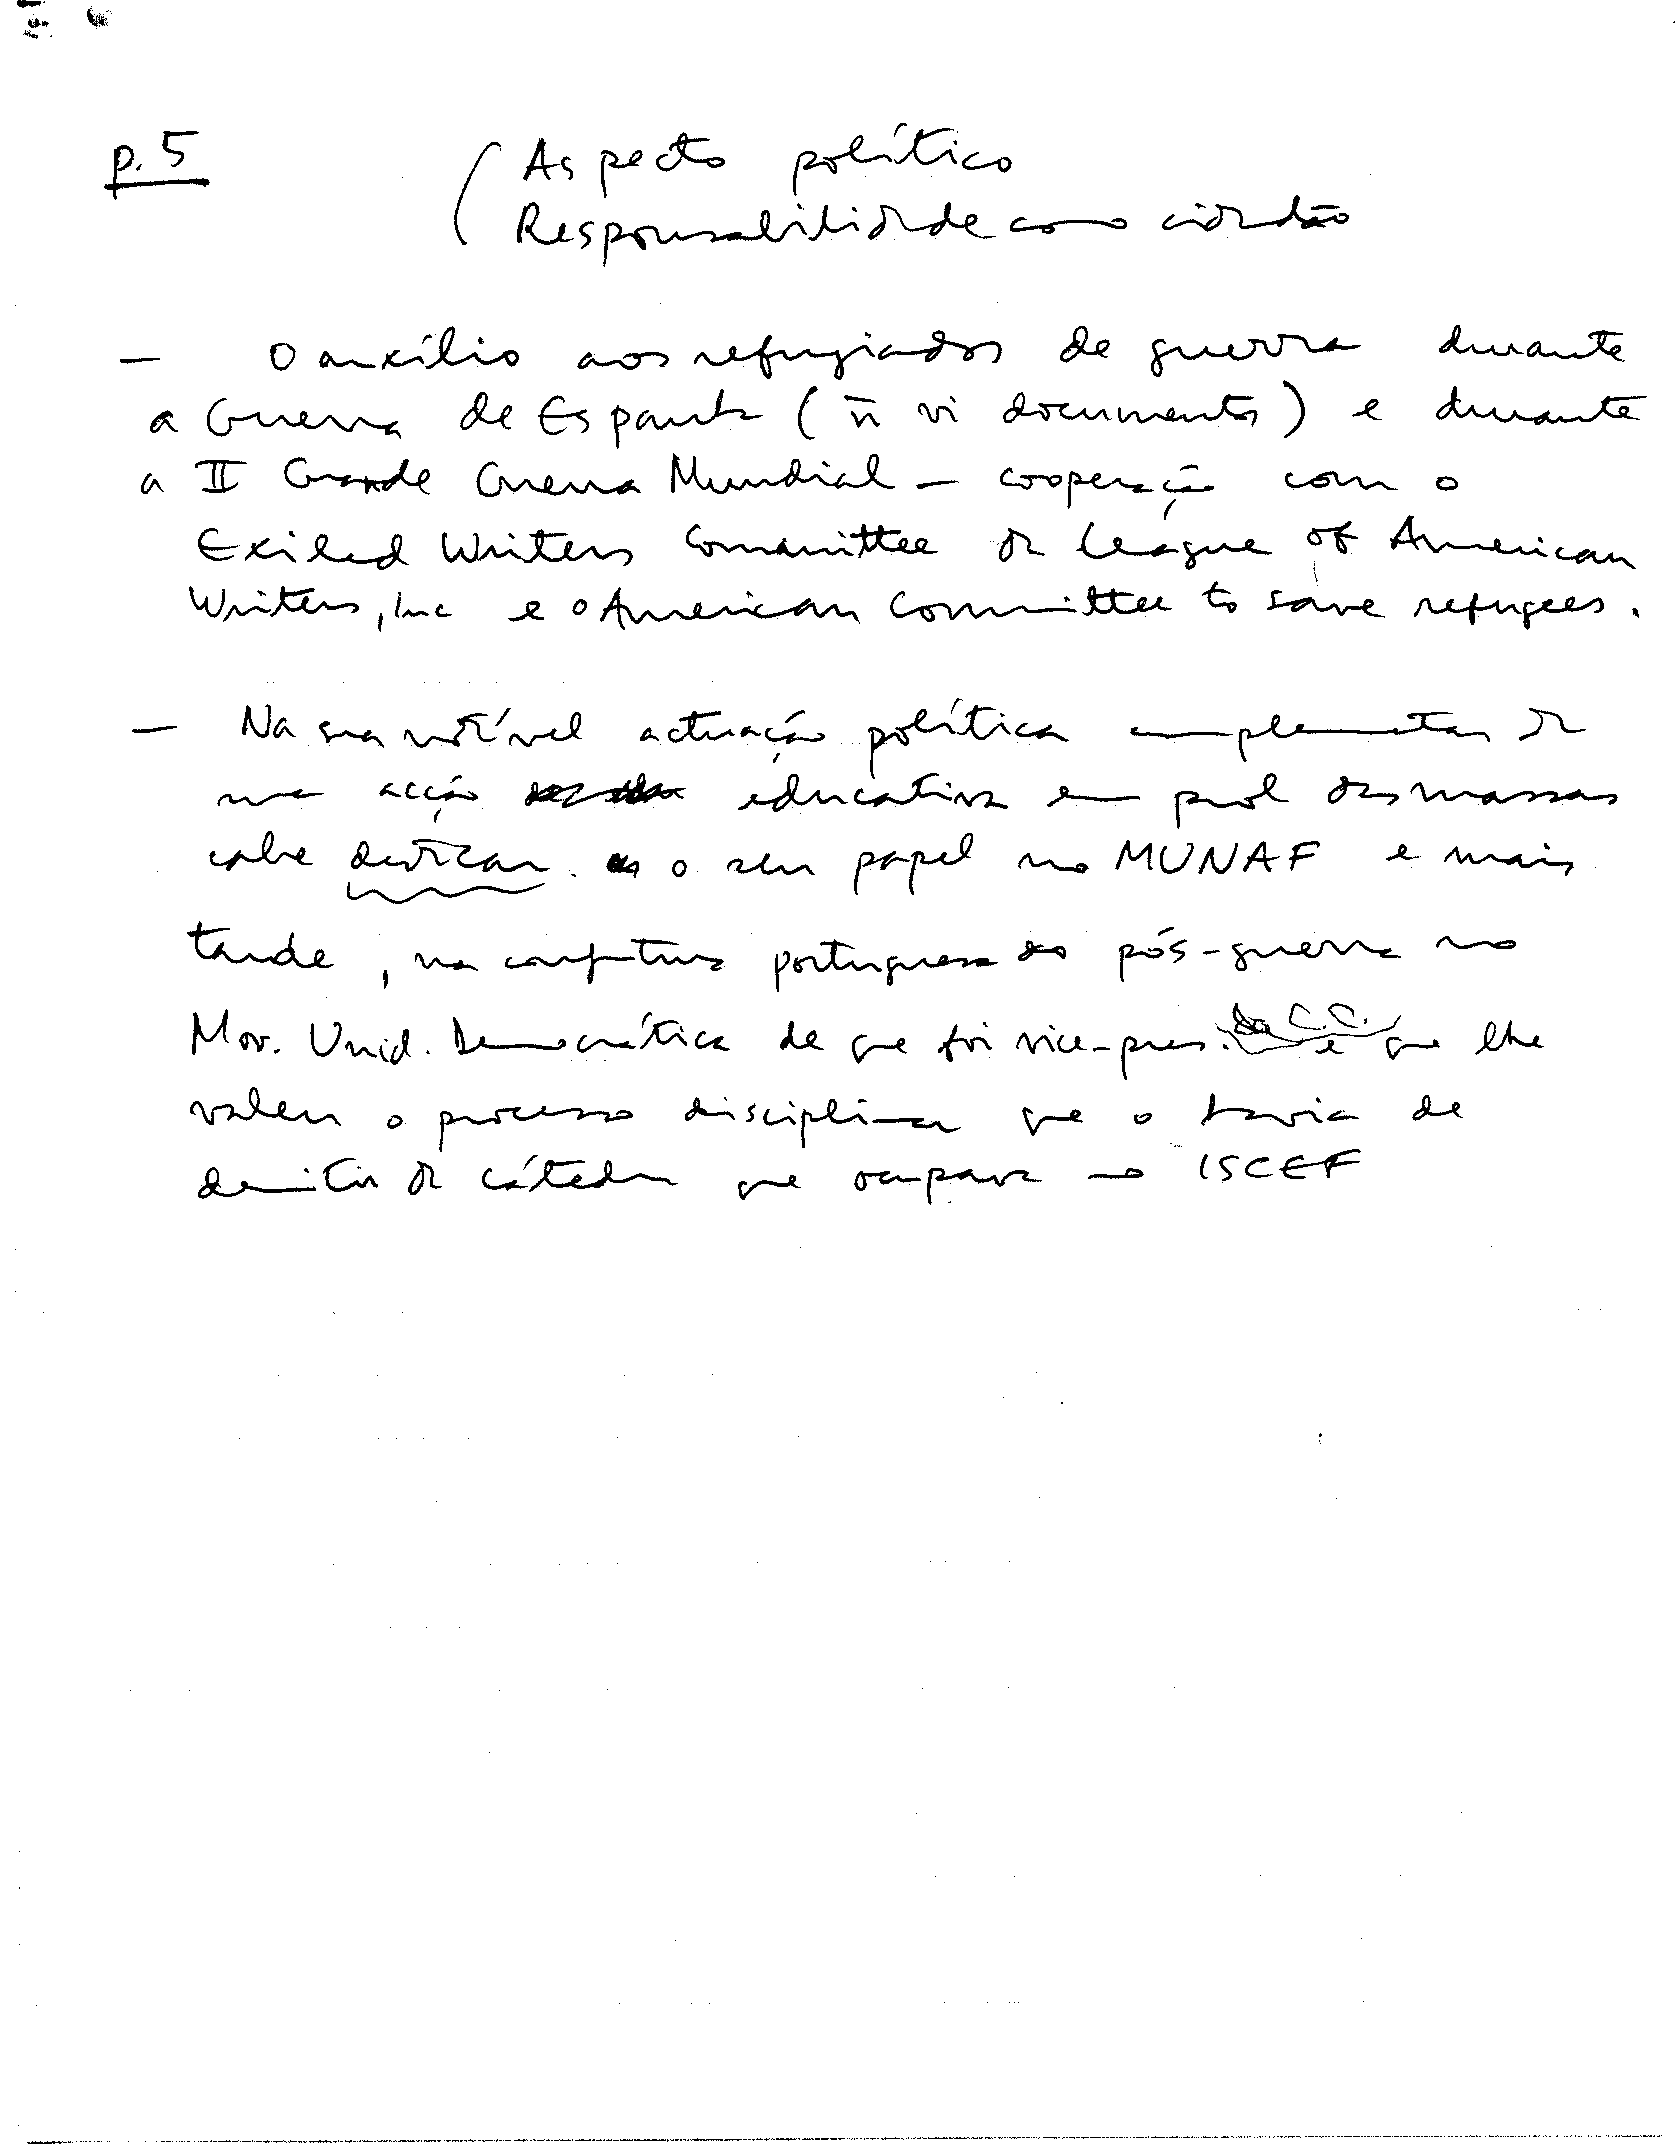 p. 5
Aspecto político
Responsabilidade como cidadão
— O auxílio aos refugiados de guerra durante
a Guerra de Espanha (ñ vi documentos) e durante
a II Grande Guerra Mundial — cooperação com o
Exiled Writers Committee da League of American
Writers, Inc e o American Committee to save refugees.
— Na sua notável actuação política complementar da
sua acção educativa em prol das massas
cabe destacar o seu papel no MUNAF e mais
tarde, na conjuntura portuguesa do pós-guerra no
Mov. Unid. Democrática de que foi vice-pres. da C.C. e que lhe
valeu o processo disciplinar que o havia de
demitir da cátedra que ocupava no ISCEF